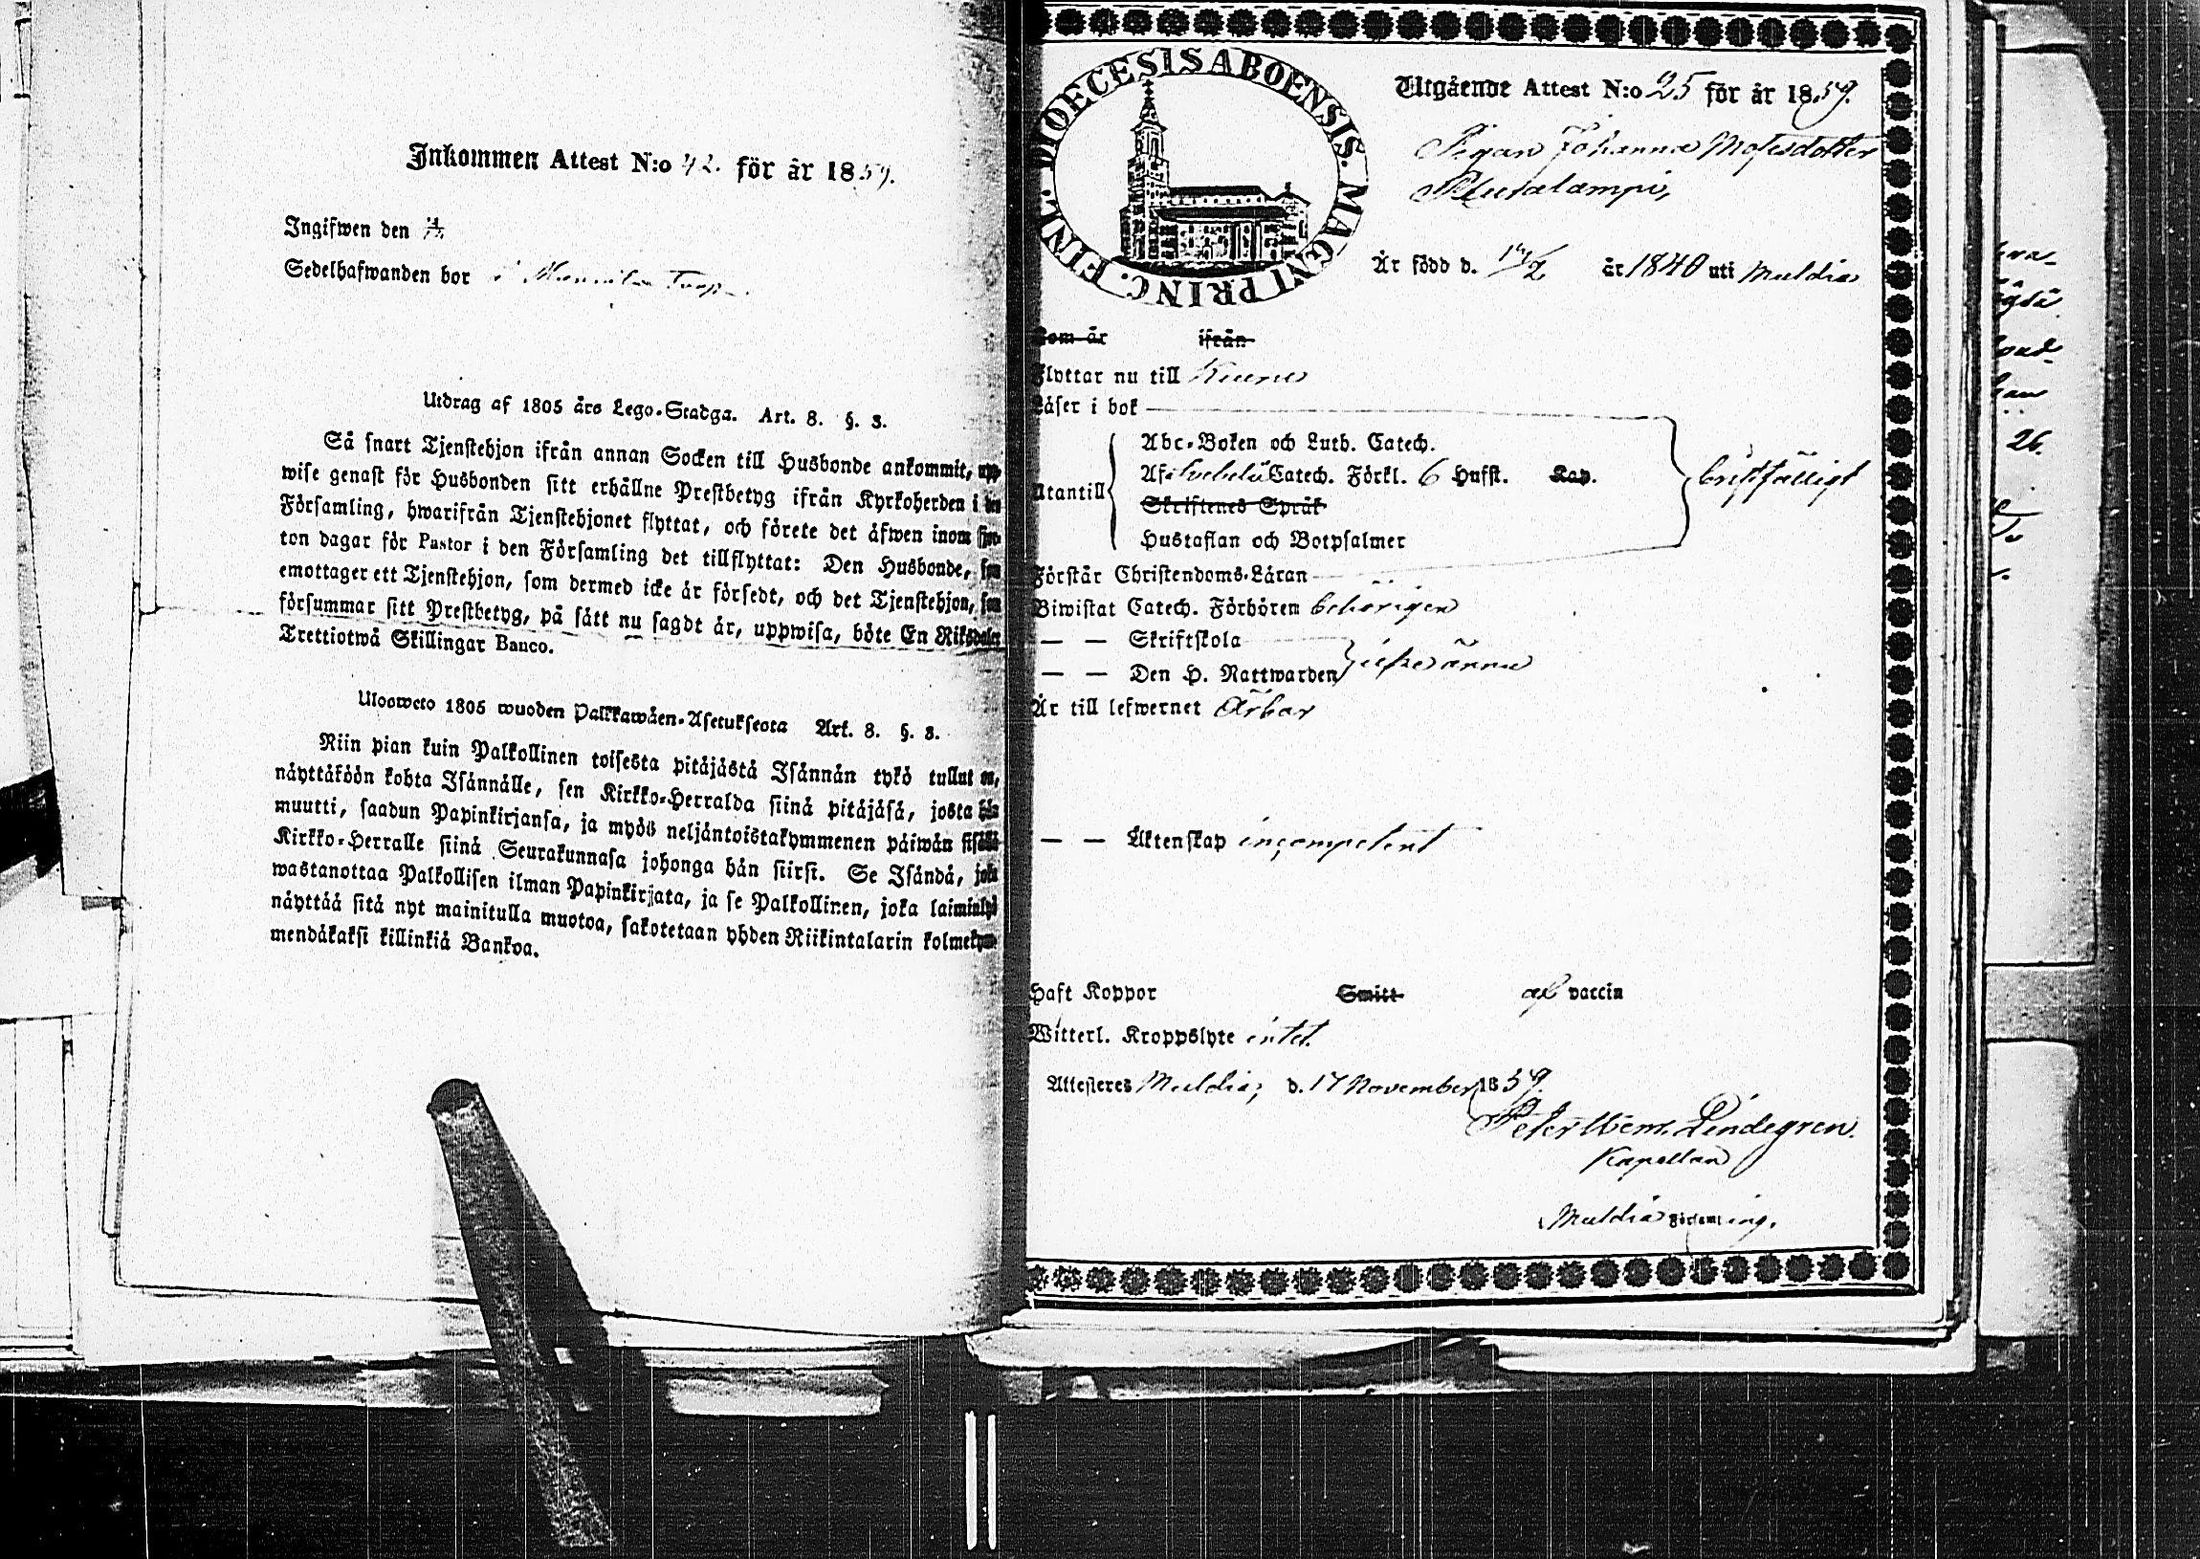 Inkommen Attest N:o 42. för år 1859.
Ingifwen den
Sedelhafwanden bor i Torp
Utdrag af 1805 års Lego-Stadga. Art. 8. §. 3.
Så snart Tjenstehjon ifrån annan Socken till Husbonde ankommit, upp-
wise genast för Husbonden sitt erhållne Prestbetyg ifrån Kyrkoherden i den
Församling, hwarifrån Tjenstehjonet flyttat, och förete det äfwen inom fjor-
ton dagar för Pastor i den Församling det tillflyttat: Den Husbonde, som
emottager ett Tjenstehjon, som dermed icke är försedt, och det Tjenstehjon, som
försummar sitt Prestbetyg, på sätt nu sagdt är, uppwisa, böte En Riksdaler
Trettiotwå Skillingar Banco.
Ulosweto 1805 wuoden Palkkawäen-Asetuksesta Art. 8. §. 3.
Niin pian kuin Palkollinen toisesta pitäjästä Isännän tykö tullut on,
näyttäköön kohta Isännälle, sen Kirkko-Herralda siinä pitäjäsä, josta hän
muutti, saadun Papinkirjansa, ja myös neljäntoistakymmenen päiwän sisällä
Kirkko-Herralle siinä Seurakunnasa johonga hän siirsi. Se Isändä, joka
wastanottaa Palkollisen ilman Papinkirjata, ja se Palkollinen, joka laiminlyö
näyttää sitä nyt mainitulla muotoa, sakotetaan yhden Riikintalarin kolmekym-
mendäkaksi killinkiä Bankoa.
FINL. DIOECESIS ABOENSIS. MAGNI PRINC.
Utgående Attest N:o 25 för år 1859.
Pigan Johanna Mosesdotter
Är född d. 14/2 år 1840 uti Muldia
Som är ifrån
Flyttar nu till Keuru
Läser i bok
Abc-Boken och Luth. Catech.
Af Svebelii Catech. Förkl. 6 Hufst. Kap.
Utantill
Skriftenes Språk
bristfälligt
Hustaflan och Botpsalmer
Förstår Christendoms-Läran
Biwistat Catech. Förhören behörigen
— — Skriftskola
— — Den H. Nattwarden icke ännu
Är till lefwernet Ärbar
— — Äktenskap incompetent
Haft Koppor Smitt af vaccin
Witterl. Kroppslyte intet.
Attesteres Muldia, d. 17 November 1859.
Peter Wem. Lindegren.
Kapellan
Muldia Församling.
26.